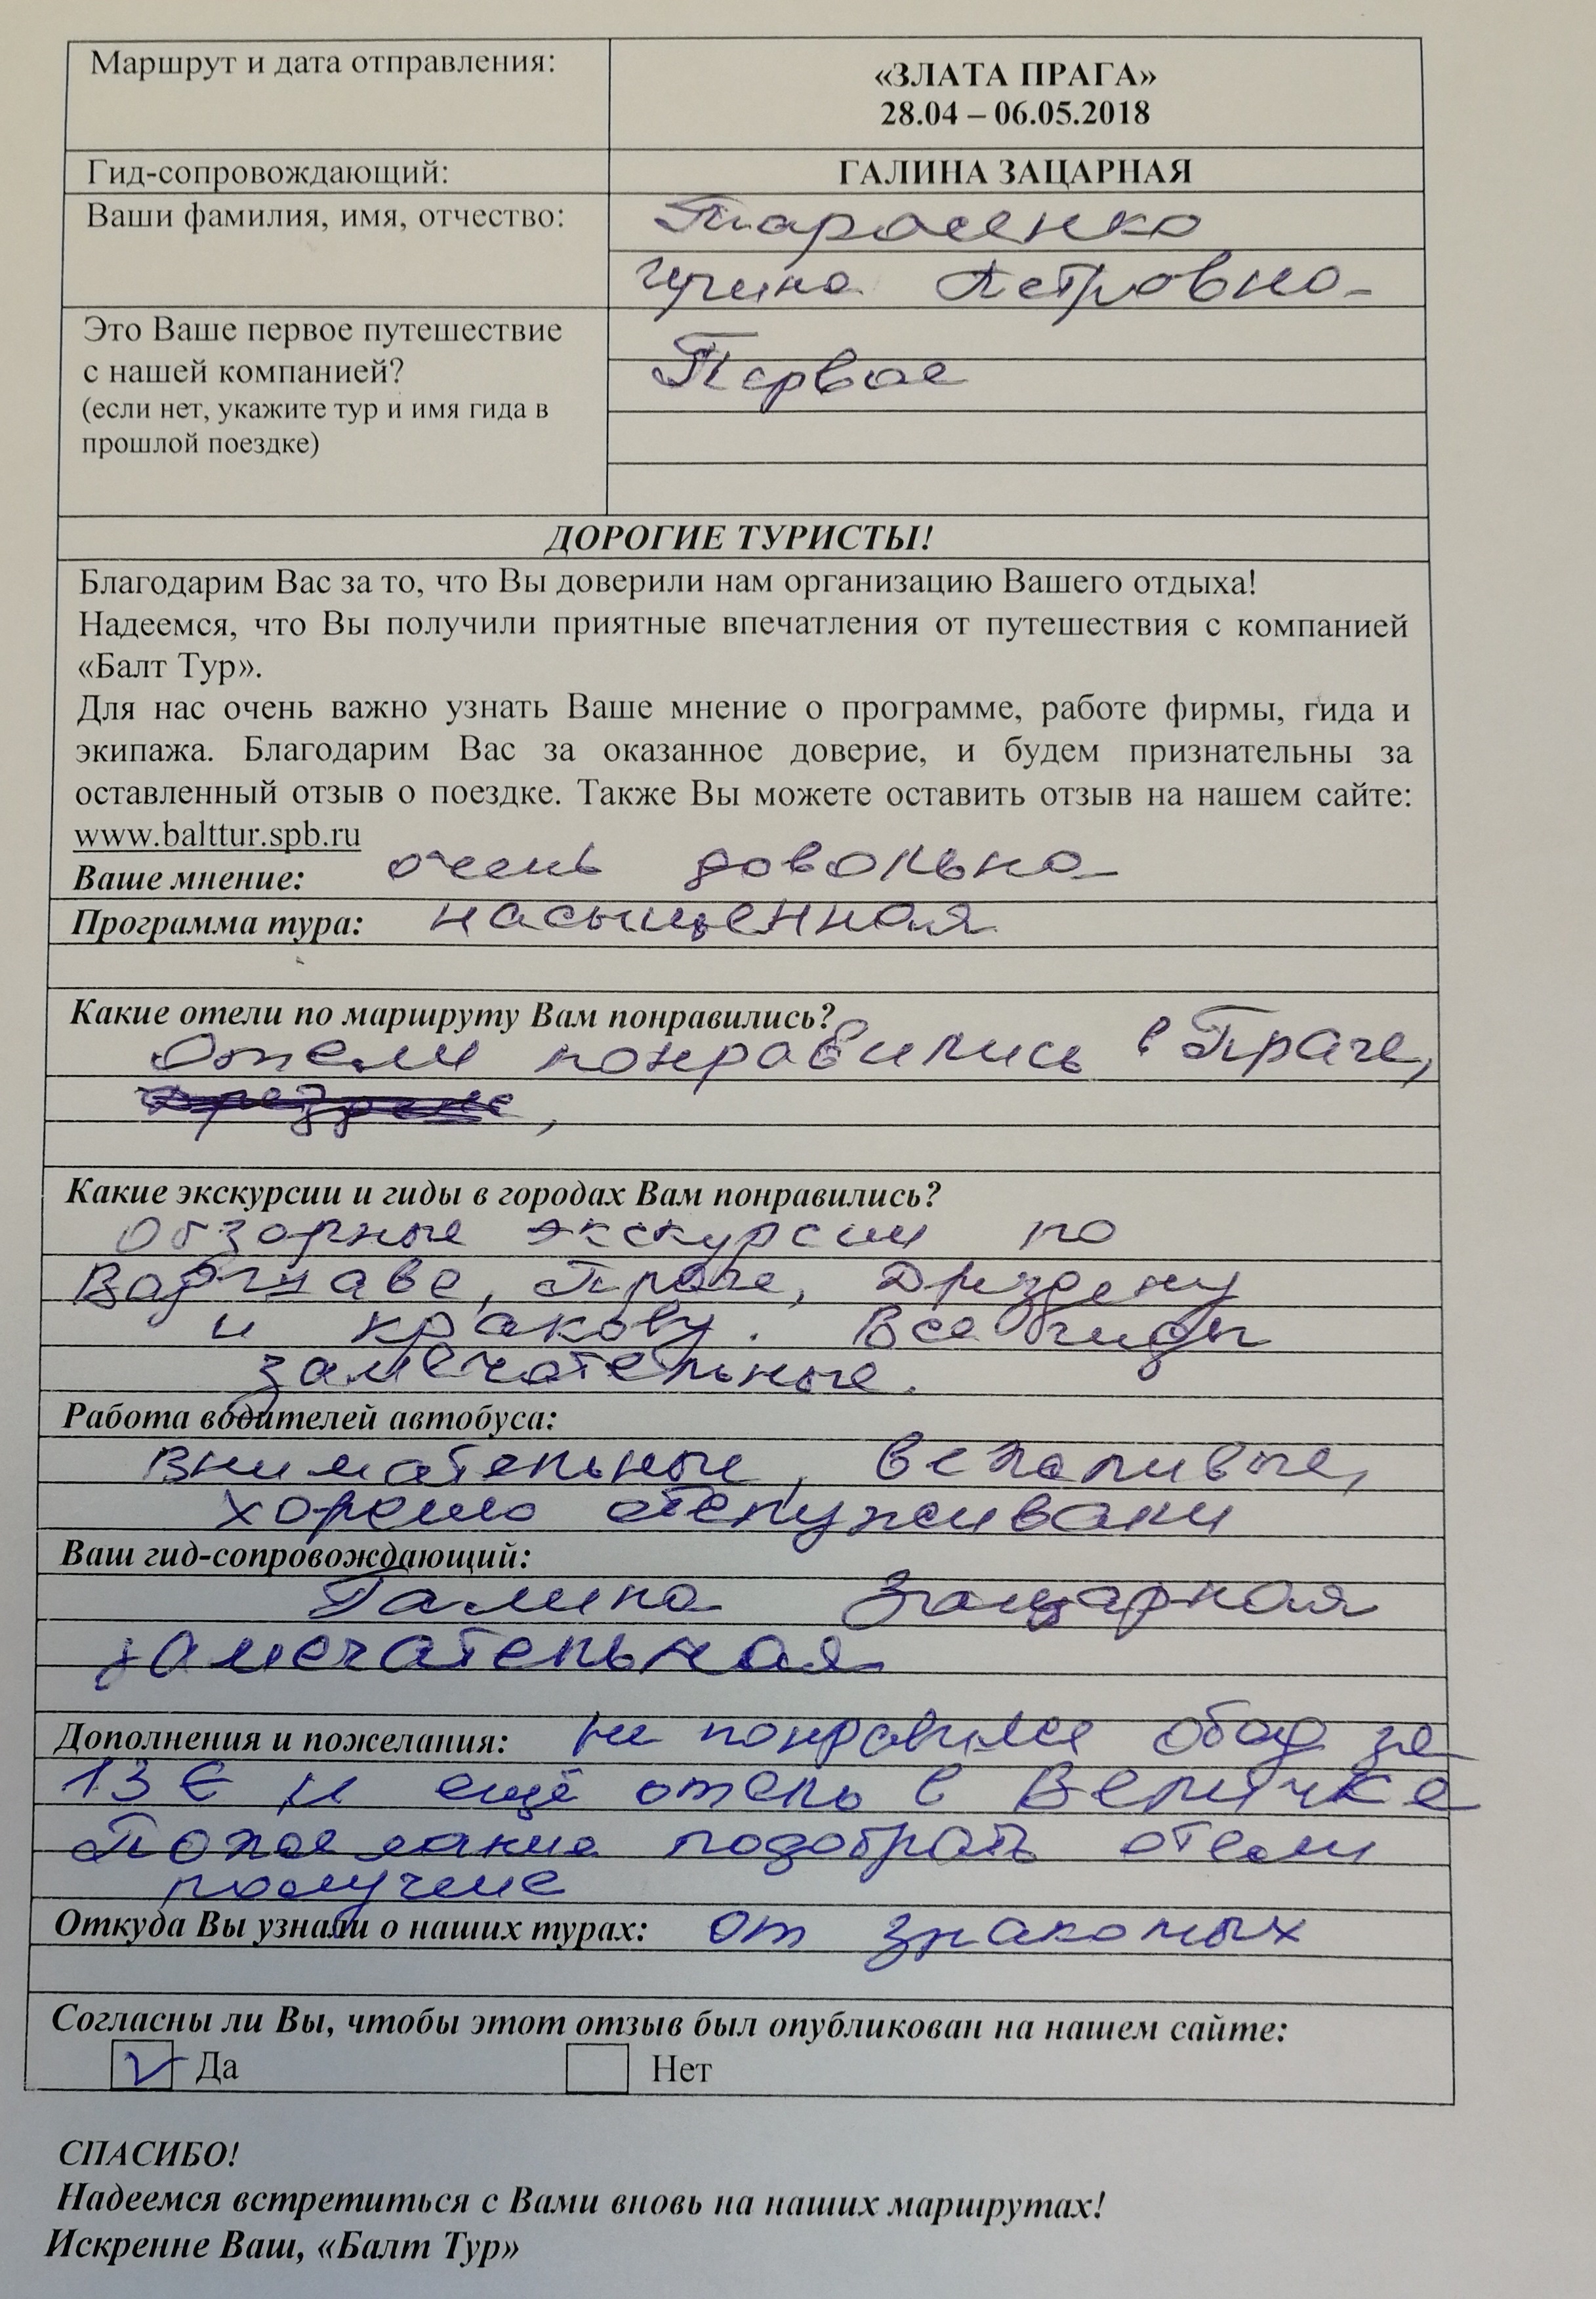 Маршрут и дата отправления:
«ЗЛАТА ПРАГА»
28.04 – 06.05.2018
Гид-сопровождающий:
ГАЛИНА ЗАЦАРНАЯ
Ваши фамилия, имя, отчество:
Тарасенко
Ирина Петровна
Это Ваше первое путешествие
с нашей компанией?
(если нет, укажите тур и имя гида в
прошлой поездке)
Первое
ДОРОГИЕ ТУРИСТЫ!
Благодарим Вас за то, что Вы доверили нам организацию Вашего отдыха!
Надеемся, что Вы получили приятные впечатления от путешествия с компанией
«Балт Тур».
Для нас очень важно узнать Ваше мнение о программе, работе фирмы, гида и
экипажа. Благодарим Вас за оказанное доверие, и будем признательны за
оставленный отзыв о поездке. Также Вы можете оставить отзыв на нашем сайте:
www.balttur.spb.ru
Ваше мнение: очень довольна
Программа тура: насыщенная
Какие отели по маршруту Вам понравились?
Отели понравились в Праге,
Какие экскурсии и гиды в городах Вам понравились?
Обзорные экскурсии по
Варшаве, Праге, Дрездену
и Кракову. Все гиды
замечательные.
Работа водителей автобуса:
Внимательные, вежливые,
хорошо обслуживали
Ваш гид-сопровождающий:
Галина Зацарная
замечательная
Дополнения и пожелания: не понравился обед за
13 € и ещё отель в Величке
Пожелание подобрать отели
получше
Откуда Вы узнали о наших турах: От знакомых
Согласны ли Вы, чтобы этот отзыв был опубликован на нашем сайте:
Да Нет
СПАСИБО!
Надеемся встретиться с Вами вновь на наших маршрутах!
Искренне Ваш, «Балт Тур»